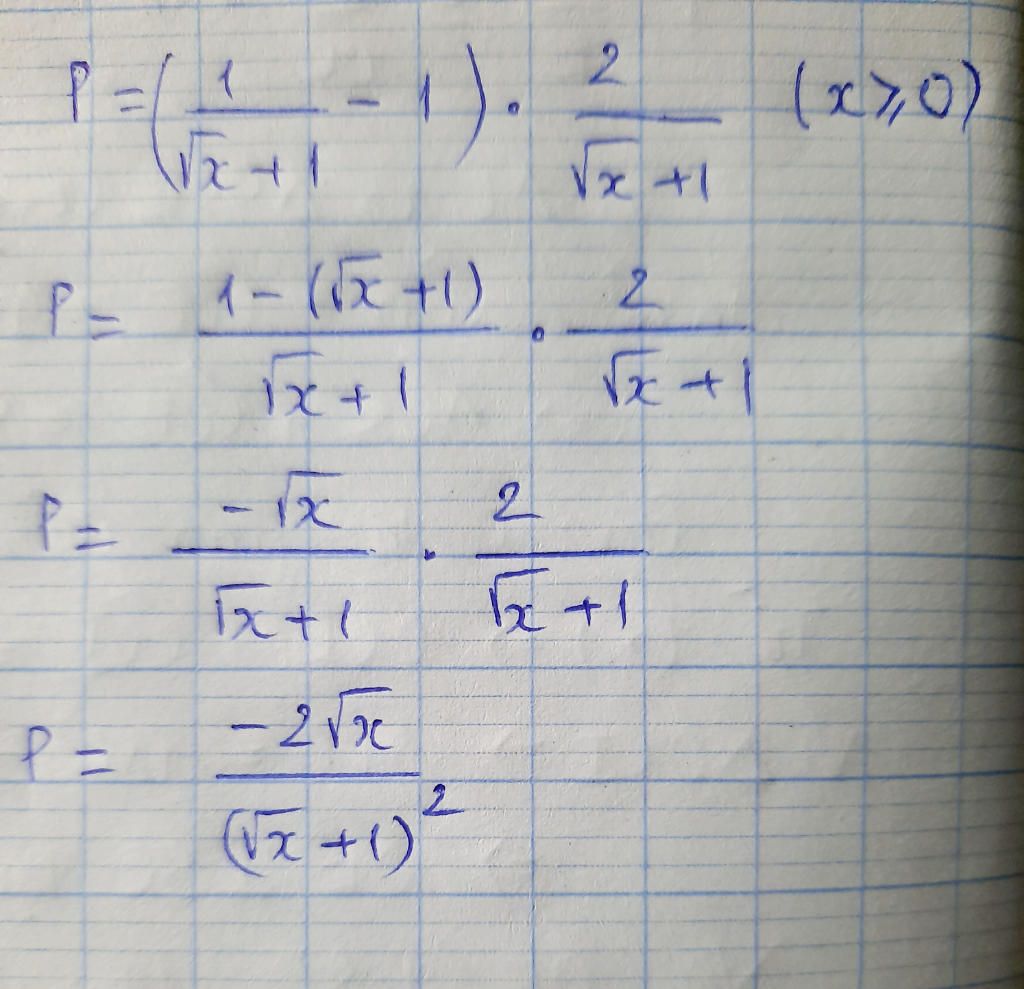 P = (1/(√x + 1) - 1) · 2/(√x + 1) (x ⩾ 0)
P = (1 - (√x + 1))/(√x + 1) · 2/(√x + 1)
P = (-√x)/(√x + 1) · 2/(√x + 1)
P = (-2√x)/(√x + 1)²